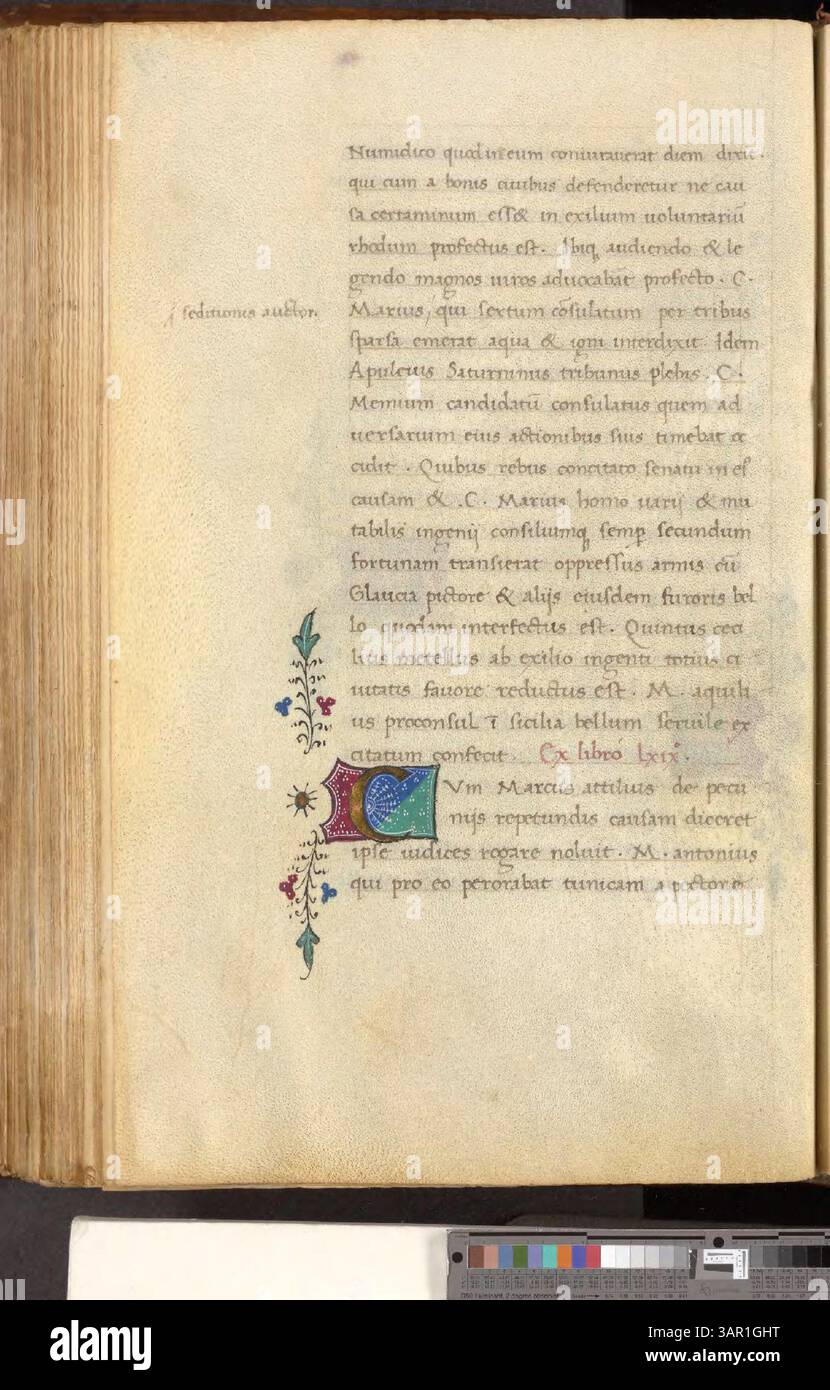 Numidico quod in eum coniurauerat diem dixit.
qui cum a bonis ciuibus defenderetur ne cau
sa certaminum ess& in exilium uoluntariū
rhodum profectus est. Ibiq audiendo & le
gendo magnos uiros aduocabāt profecto. C.
seditionis auctor.
Marius, qui sextum cōsulatum per tribus
sparsa emerat aqua & igni interdixit. Idem
Apuleius Saturninus tribunus plebis. C.
Memium candidatū consulatus quem ad
uersarium eius actionibus suis timebat oc
cidit. Quibus rebus concitato senatu in eſ
causam & .C. Marius homo uarij & mu
tabilis ingenij consiliumq semp secundum
fortunam transierat oppressus armis cū
Glaucia pictore & alijs eiusdem furoris bel
lo quodam interfectus est. Quintus ceci
lius metellus ab exilio ingenti totius ci
uitatis fauore reductus est. M. aquili
us proconsul ī sicilia bellum seruile ex
citatum confecit. Ex libro lxix°.
CVm Marcus attilius de pecu
nijs repetundis causam diceret
ipse iudices rogare noluit. M. antonius
qui pro eo perorabat tunicam a pectore
alamy
Image ID: 3AR1GHT
www.alamy.com